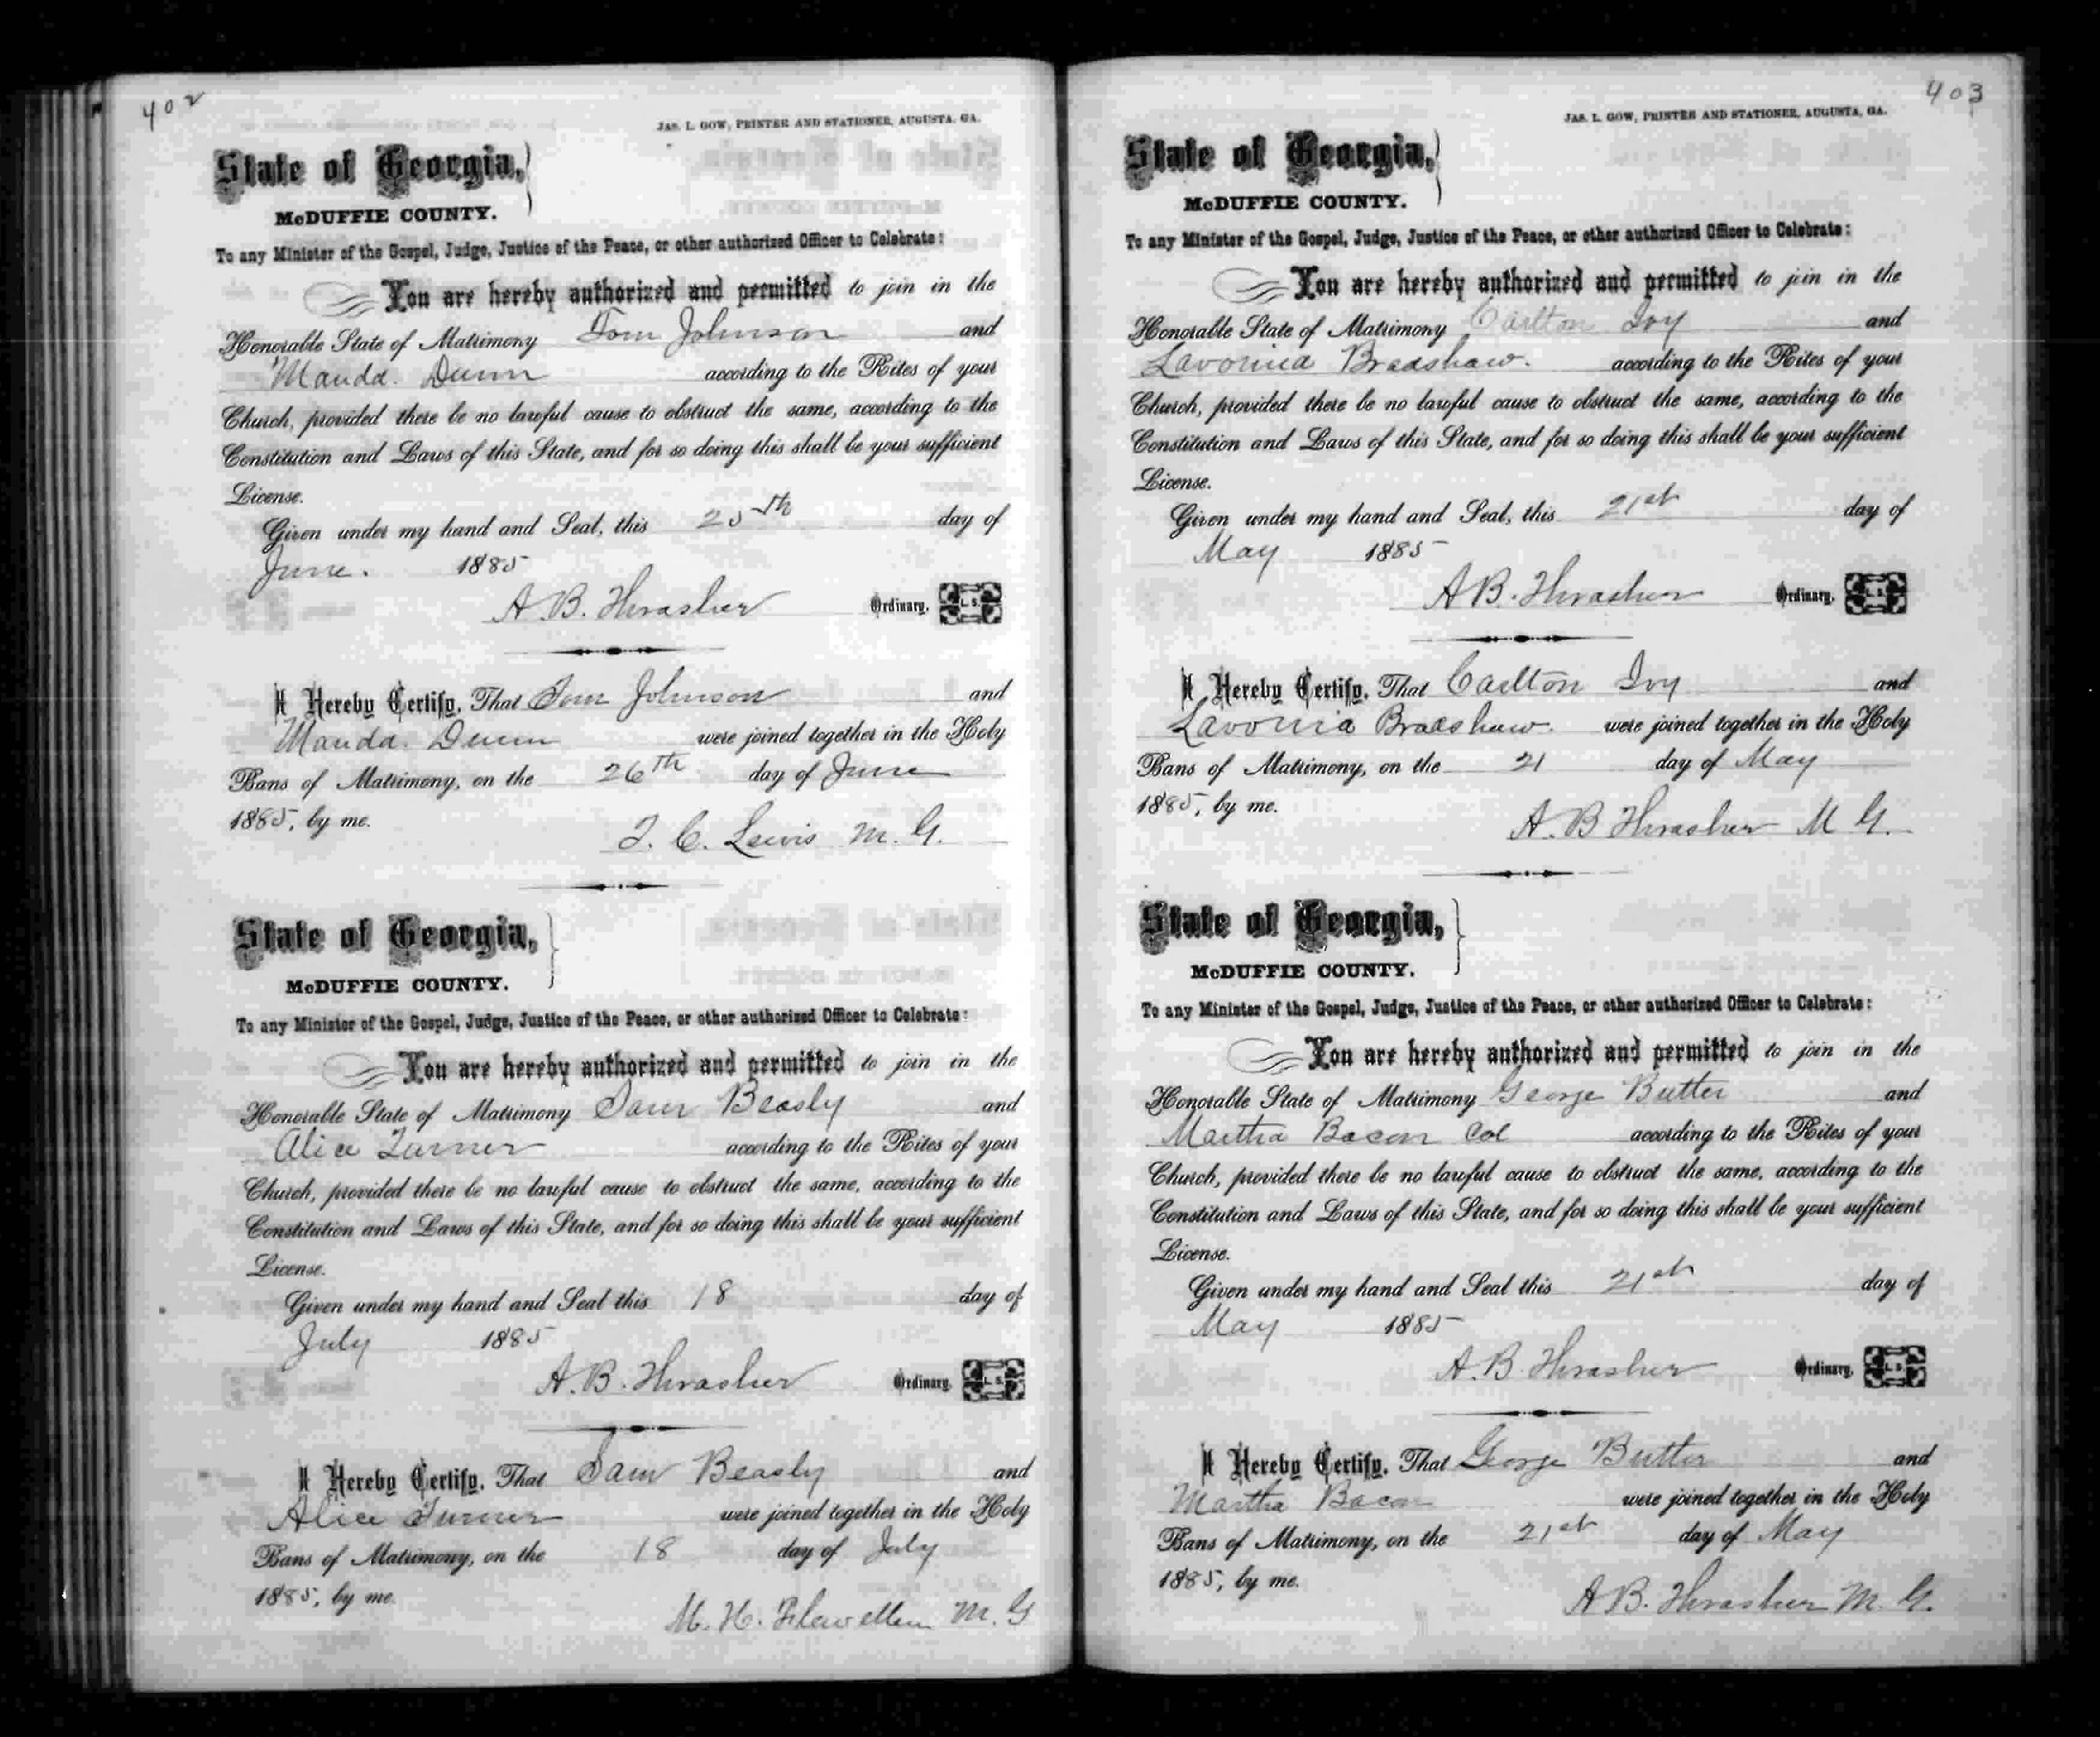 402
JAS. L. GOW, PRINTER AND STATIONER, AUGUSTA, GA.
State of Georgia,
McDUFFIE COUNTY.
To any Minister of the Gospel, Judge, Justice of the Peace, or other authorized Officer to Celebrate:
You are hereby authorized and permitted to join in the
Honorable State of Matrimony Tom Johnson and
Manda. Dunn according to the Rites of your
Church, provided there be no lawful cause to obstruct the same, according to the
Constitution and Laws of this State, and for so doing this shall be your sufficient
License.
Given under my hand and Seal, this 25th day of
June. 1885
A. B. Thrasher Ordinary. L. S.
I Hereby Certify, That Tom Johnson and
Manda. Dunn were joined together in the Holy
Bans of Matrimony, on the 26th day of June
1885, by me.
T. C. Lewis M. G.
State of Georgia,
McDUFFIE COUNTY.
To any Minister of the Gospel, Judge, Justice of the Peace, or other authorized Officer to Celebrate:
You are hereby authorized and permitted to join in the
Honorable State of Matrimony Sam Beasly and
Alice Turner according to the Rites of your
Church, provided there be no lawful cause to obstruct the same, according to the
Constitution and Laws of this State, and for so doing this shall be your sufficient
License.
Given under my hand and Seal this 18 day of
July 1885
A. B. Thrasher Ordinary. L. S.
I Hereby Certify, That Sam Beasly and
Alice Turner were joined together in the Holy
Bans of Matrimony, on the 18 day of July
1885, by me.
M. H. Flewellen M. G
403
JAS. L. GOW, PRINTER AND STATIONER, AUGUSTA, GA.
State of Georgia,
McDUFFIE COUNTY.
To any Minister of the Gospel, Judge, Justice of the Peace, or other authorized Officer to Celebrate:
You are hereby authorized and permitted to join in the
Honorable State of Matrimony Carlton Ivy and
Lavonia Bradshaw. according to the Rites of your
Church, provided there be no lawful cause to obstruct the same, according to the
Constitution and Laws of this State, and for so doing this shall be your sufficient
License.
Given under my hand and Seal, this 21st day of
May 1885
A. B. Thrasher Ordinary. L. S.
I Hereby Certify, That Carlton Ivy and
Lavonia Bradshaw. were joined together in the Holy
Bans of Matrimony, on the 21 day of May
1885, by me.
A. B Thrasher M G.
State of Georgia,
McDUFFIE COUNTY.
To any Minister of the Gospel, Judge, Justice of the Peace, or other authorized Officer to Celebrate:
You are hereby authorized and permitted to join in the
Honorable State of Matrimony George Butler and
Martha Bacon Col according to the Rites of your
Church, provided there be no lawful cause to obstruct the same, according to the
Constitution and Laws of this State, and for so doing this shall be your sufficient
License.
Given under my hand and Seal this 21st day of
May 1885
A. B. Thrasher Ordinary. L. S.
I Hereby Certify, That George Butler and
Martha Bacon were joined together in the Holy
Bans of Matrimony, on the 21st day of May
1885, by me.
A. B. Thrasher M. G.